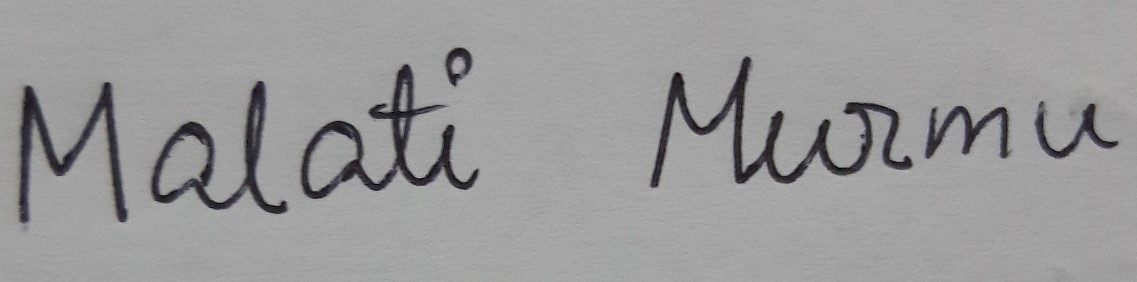 Malati Murmu